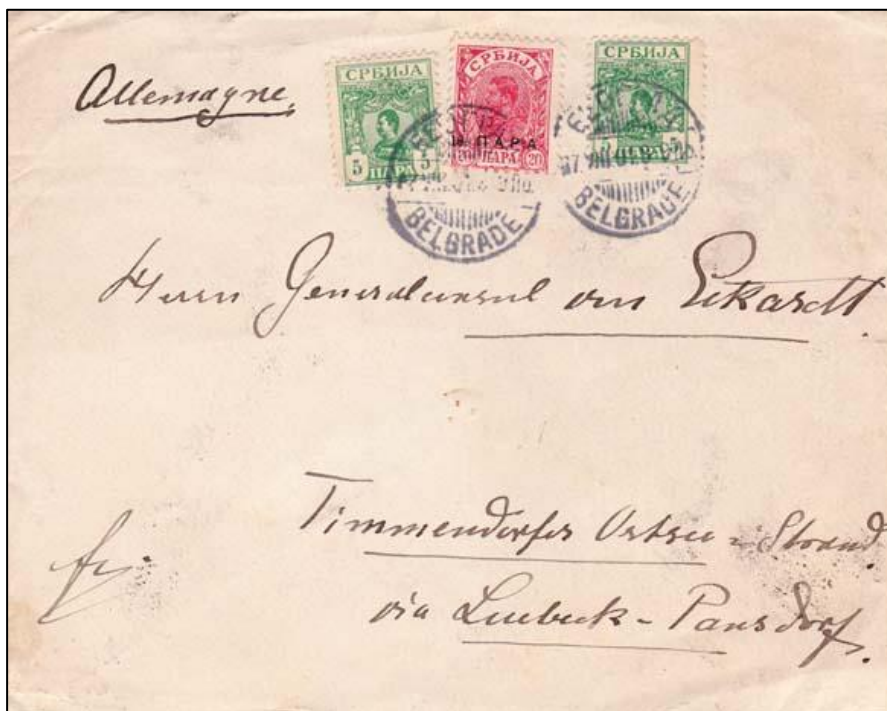 Allemagne.
СРБИЈА
5 5
ПАРА
СРБИЈА
10 ПАРА
20 ПАРА 20
СРБИЈА
5
ПАРА
BELGRADE
BELGRADE
Herrn Generalconsul von Eckardt.
Timmendorfer Ostsee-Strand
via Luebeck-Pansdorf.